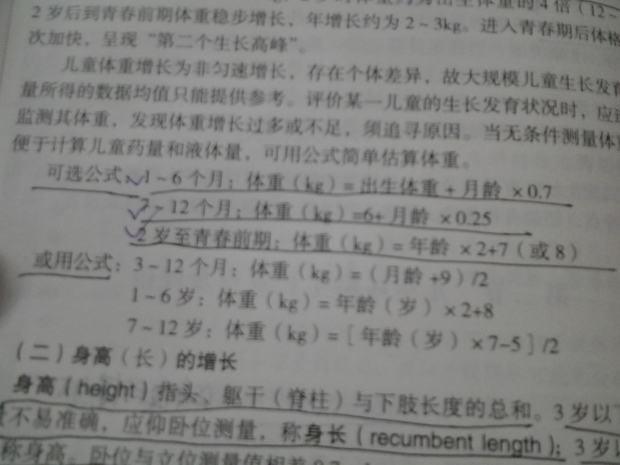 体重的4倍(12~
2岁后到青春前期体重稳步增长,年增长约为2~3kg。进入青春期后体格
次加快,呈现“第二个生长高峰”。
儿童体重增长为非匀速增长,存在个体差异,故大规模儿童生长发育
量所得的数据均值只能提供参考。评价某一儿童的生长发育状况时,应
监测其体重,发现体重增长过多或不足,须追寻原因。当无条件测量体
便于计算儿童药量和液体量,可用公式简单估算体重。
可选公式:1~6个月:体重(kg)=出生体重+月龄×0.7
7~12个月:体重(kg)=6+月龄×0.25
2岁至青春前期:体重(kg)=年龄×2+7(或8)
或用公式:3~12个月:体重(kg)=(月龄+9)/2
1~6岁:体重(kg)=年龄(岁)×2+8
7~12岁:体重(kg)=[年龄(岁)×7-5]/2
(二)身高(长)的增长
身高(height)指头、躯干(脊柱)与下肢长度的总和。3岁以
不易准确,应仰卧位测量,称身长(recumbent length);3岁
称身高。卧位与立位测量值相差